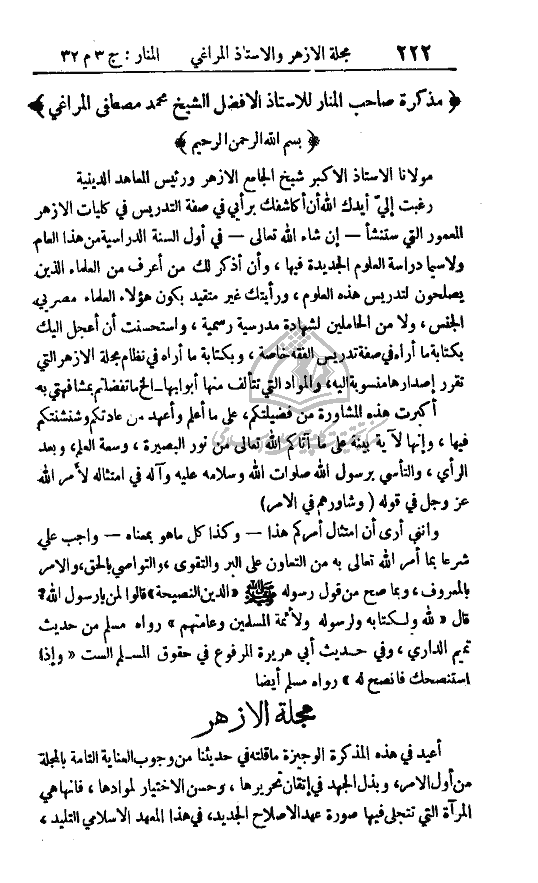 ٢٢٢ مجلة الازهر والاستاذ المراغي المنار : ج ٣ م ٣٢
﴿ مذكرة صاحب المنار للاستاذ الافضل الشيخ محمد مصطفى المراغي ﴾
﴿ بسم الله الرحمن الرحيم ﴾
مولانا الاستاذ الاكبر شيخ الجامع الازهر ورئيس المعاهد الدينية
رغبت إليّ أيدك الله أن أكاشفك برأيي في صفة التدريس في كليات الازهر
المعمور التي ستنشأ — إن شاء الله تعالى — في أول السنة الدراسية من هذا العام
ولاسيما دراسة العلوم الجديدة فيها ، وأن أذكر لك من أعرف من العلماء الذين
يصلحون لتدريس هذه العلوم ، ورأيتك غير متقيد بكون هؤلاء العلماء مصريي
الجنس ، ولا من الحاملين لشهادة مدرسية رسمية ، واستحسنت أن أعجل اليك
بكتابة ما أراه في صفة تدريس الفقه خاصة ، وبكتابة ما أراه في نظام مجلة الازهر التي
تقرر إصدارها منسوبة اليه، والمواد التي تتألف منها أبوابها_الخ ما تفضلتم بمشافهتي به
أكبرت هذه المشاورة من فضيلتكم، على ما أعلم وأعهد من عادتكم وشنشنتكم
فيها ، وإنها لآية بينة على ما آتاكم الله تعالى من نور البصيرة ، وسعة العلم، وبعد
الرأي ، والتأسي برسول الله صلوات الله وسلامه عليه وآله في امتثاله لأمر الله
عز وجل في قوله ( وشاورهم في الامر)
وانني أرى أن امتثال أمركم هذا — وكذا كل ماهو بمعناه — واجب علي
شرعا بما أمر الله تعالى به من التعاون على البر والتقوى، والتواصي بالحق، والامر
بالمعروف ، وبما صح من قول رسوله ﷺ «الدين النصيحة» قالوا لمن يارسول الله؟
قال « لله ولكتابه ولرسوله ولأئمة المسلمين وعامتهم » رواه مسلم من حديث
تميم الداري ، وفي حديث أبي هريرة المرفوع في حقوق المسلم الست « وإذا
استنصحك فانصح له » رواه مسلم أيضا
مجلة الازهر
أعيد في هذه المذكرة الوجيزة ماقلته في حديثنا من وجوب العناية التامة بالمجلة
من أول الامر، وبذل الجهد في إتقان تحريرها ، وحسن الاختيار لموادها ، فانها هي
المرآة التي تتجلى فيها صورة عهد الاصلاح الجديد، في هذا المعهد الاسلامي التليد ،